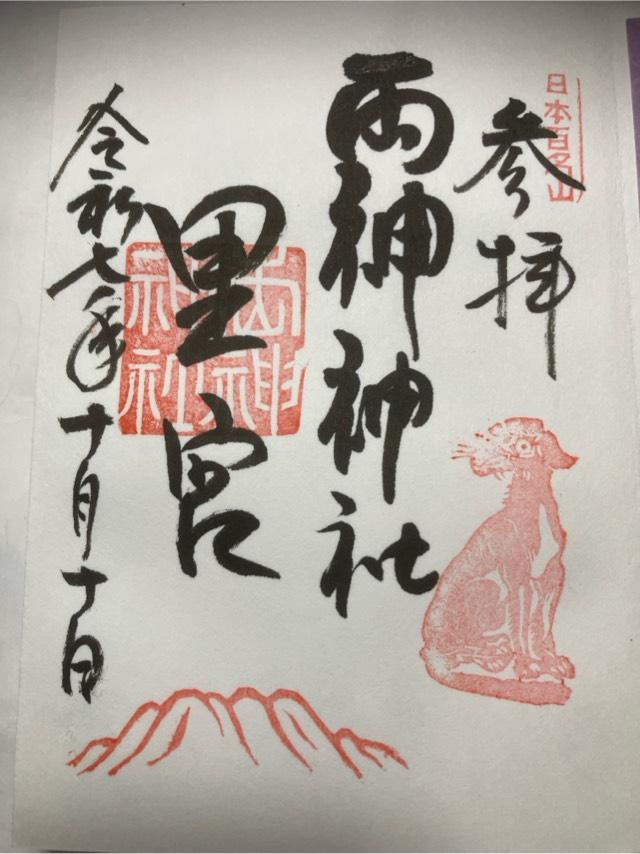 日本百名山
参拝
両神神社
里宮
両神
神社
令和七年十月十日